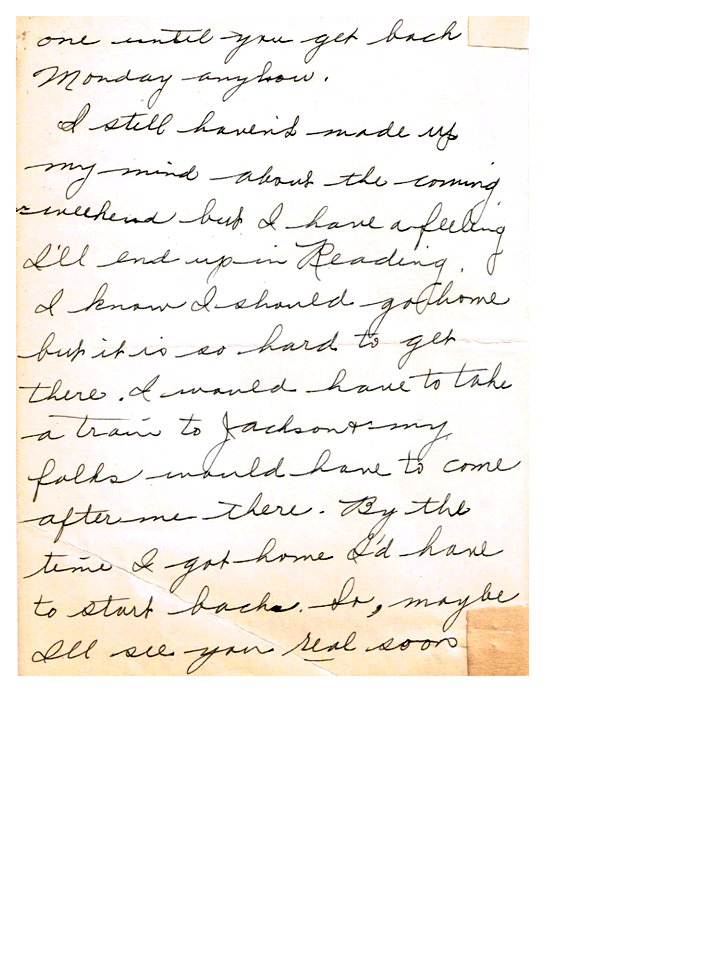 one until you get back
Monday anyhow.
I still haven't made up
my mind about the coming
weekend but I have a feeling
I'll end up in Reading.
I know I should go home
but it is so hard to get
there. I would have to take
a train to Jackson & my
folks would have to come
after me there. By the
time I got home I'd have
to start back. So, maybe
I'll see you real soon